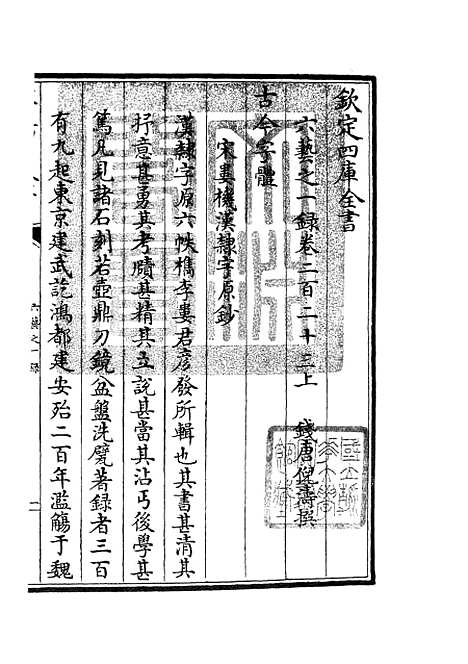 欽定四庫全書
六藝之一録卷二百二十三上
錢唐倪濤撰
古今字體
宋婁機漢隸字原鈔
漢隸字原六帙檇李婁君彦發所輯也其書甚清其
抒意甚勇其考賾甚精其立說甚當其沾丐後學甚
篤凡見諸石刻若壺鼎刀鏡盆盤洗甓著録者三百
有九起東京建武訖鴻都建安殆二百年濫觴于魏
六藝之一録